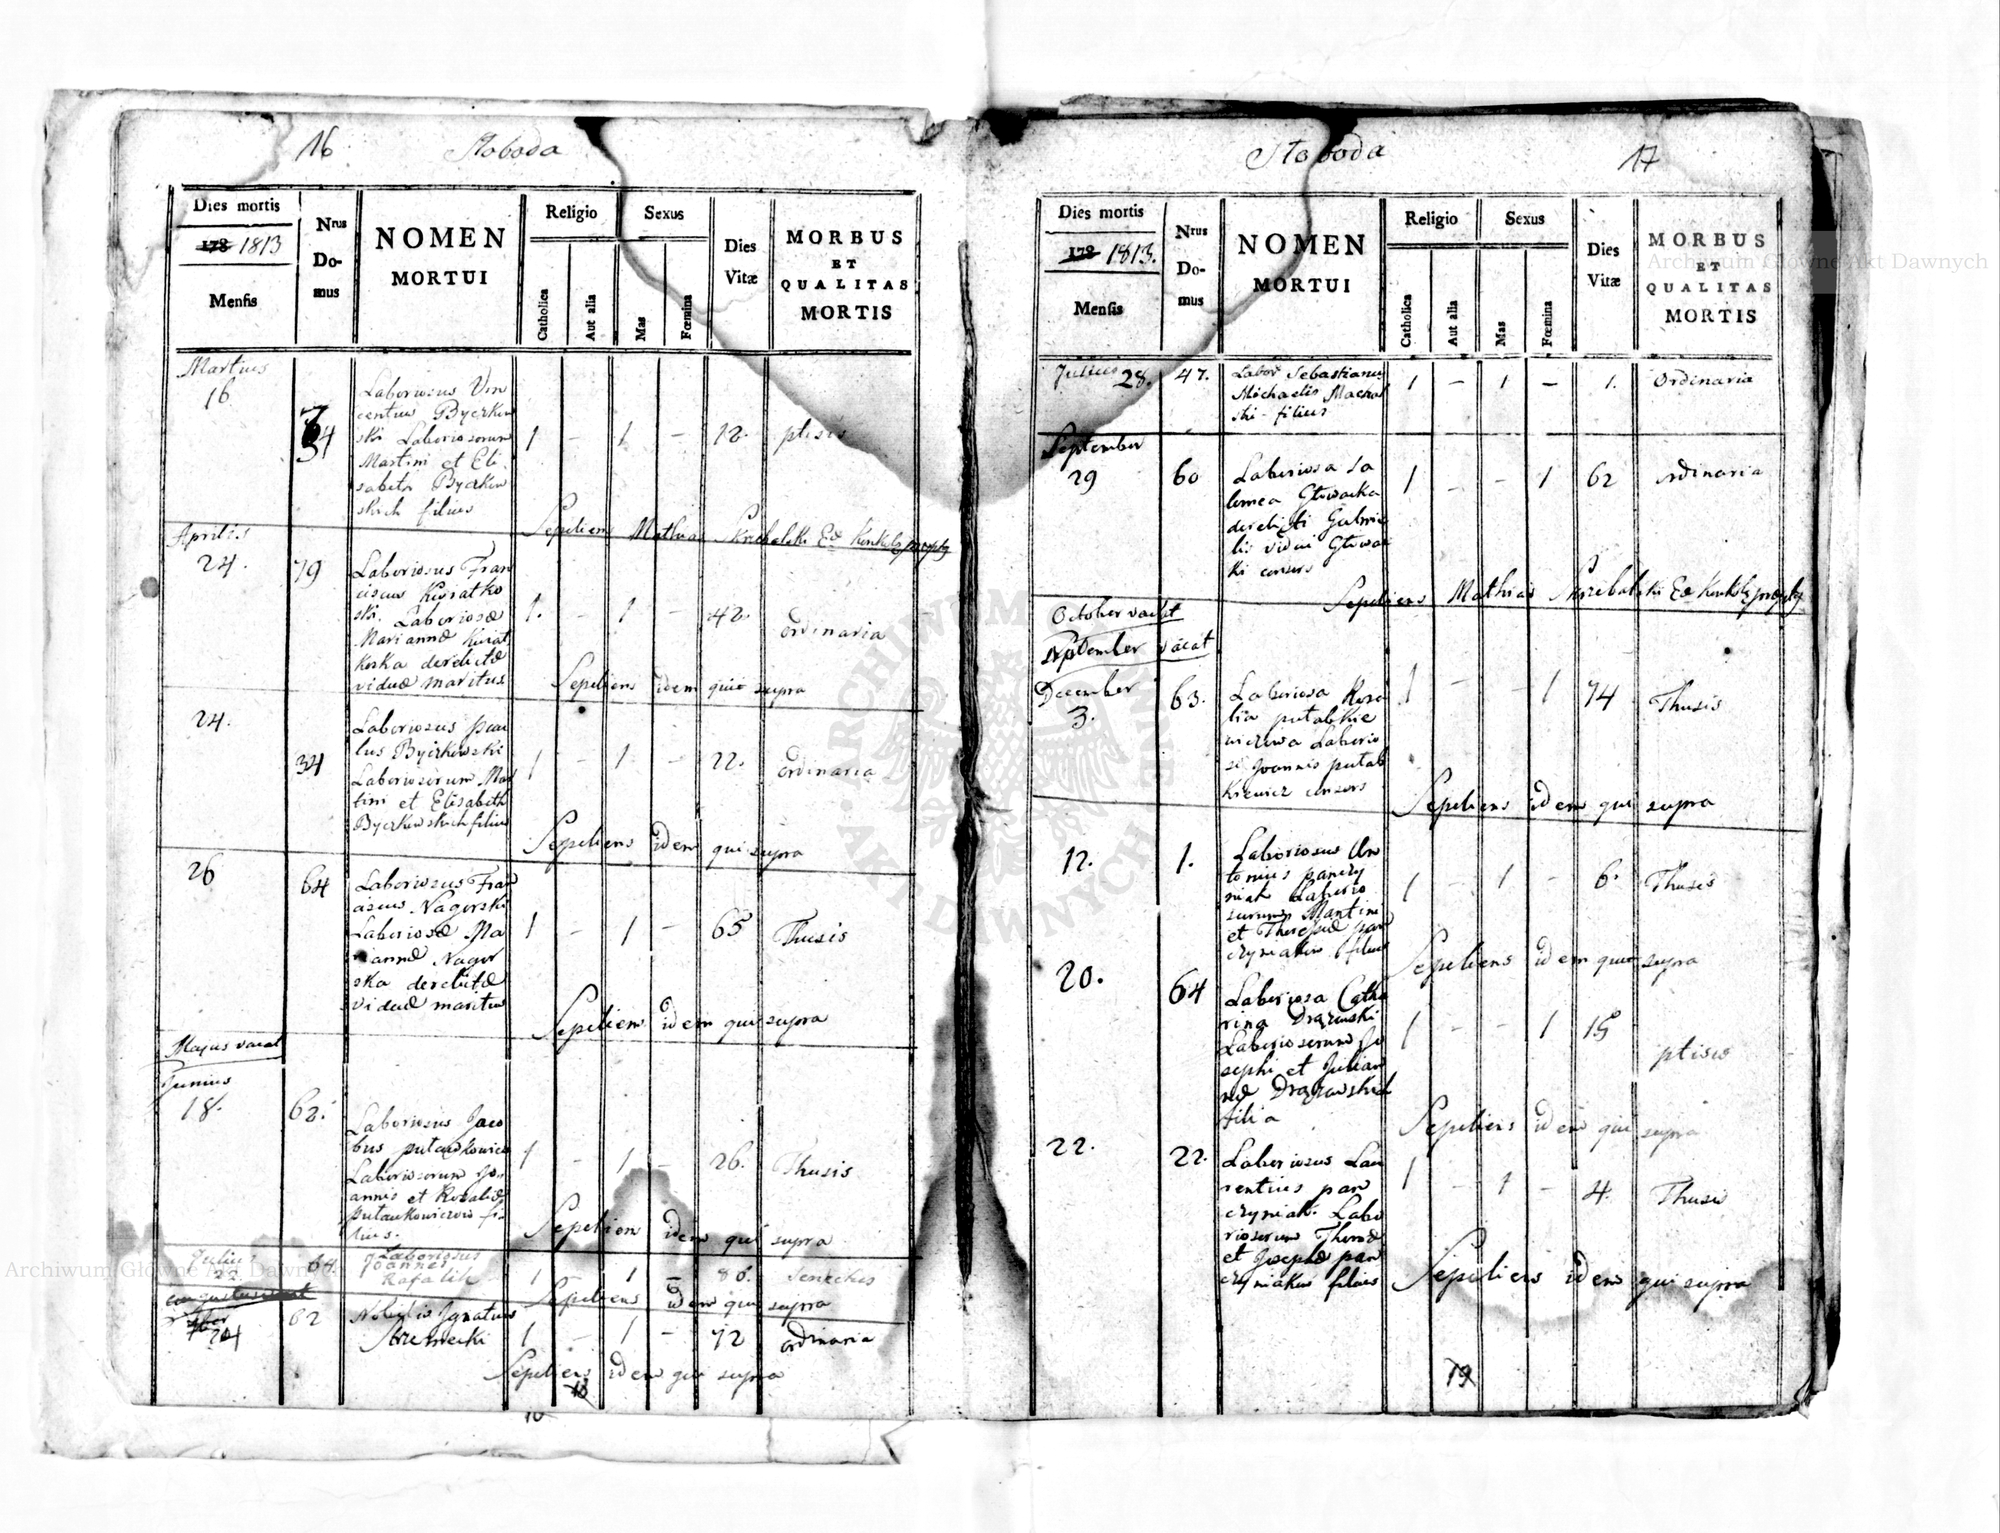 16
Słoboda
Dies mortis
178 1813
Mensis
Nrus
Do-
mus
NOMEN
MORTUI
Religio
Catholica
Aut alia
Sexus
Mas
Fœmina
Dies
Vitæ
MORBUS
ET
QUALITAS
MORTIS
Martius
16
34
Laboriosus Vin
centius Byczkow
ski Laboriosorum
Martini et Eli
sabeth Byczkow
skich filius
1 – 1 – 12. ptisis
Sepeliens Mathias
Aprilis
24. 79
Laboriosus Fran
ciscus Kwiatko
ski. Laboriosæ
Mariannæ Kwiat
koska derelictæ
viduæ maritus
1. – 1 – 42. ordinaria
Sepeliens idem qui supra
24.
34
Laboriosus Pau
lus Byczkowski
Laboriosorum Mar
tini et Elisabeth
Byczkowskich filius
1 – 1 – 22. ordinaria
Sepeliens idem qui supra
26 64
Laboriosus Fran
ciscus Nagorski
Laboriosæ Ma
riannæ Nagor
ska derelictæ
viduæ maritus
1 – 1 – 65 Thusis
Sepeliens idem qui supra
Majus vacat
Junius
18. 62.
Laboriosus Jaco
bus
Laboriosorum Jo
annis et Rosaliæ
fi
lius.
1 – 1 – 26. Thusis
Sepeliens idem qui supra
Julius
22 68.
Laboriosus
Joannes
Rafalik
1 1 – 86.
Sepeliens idem qui supra
24 62
Nobilis Ignatius
1 – 1 – 72 ordinaria
Sepeliens idem qui supra
Słoboda
17
Dies mortis
178 1813.
Mensis
Nrus
Do-
mus
NOMEN
MORTUI
Religio
Catholica
Aut alia
Sexus
Mas
Fœmina
Dies
Vitæ
MORBUS
ET
QUALITAS
MORTIS
Julius 28. 47.
Labor Sebastianus
Michaelis
ski – filius
1 – 1 – 1. Ordinaria
September
29 60
Laboriosa Sa
lomea Głowacka
derelicti Gabrie
lis vidui Głowac
ki consors
1 – – 1 62 ordinaria
Sepeliens Mathias
October vacat
September vacat
December
3. 63.
Laboriosa Rosa
lia
Laborio
si Joannis
consors
1 – – 1 74 Thusis
Sepeliens idem qui supra
12. 1.
Laboriosus An
tonius Panczy
niak Laborio
sorum Martini
et Theresiæ Pan
czyniakow filius
1 – 1 – 6. Thusis
Sepeliens idem qui supra
20. 64
Laboriosa Catha
rina Drązewski
Laboriosorum Jo
sephi et Julian
næ Drązewskich
filia
1 – – 1 15 ptisis
Sepeliens idem qui supra
22. 22.
Laboriosus Lau
rentius Pan
czyniak. Labo
riosorum
et Josephæ Pan
czyniakow filius
1 – 1 – 4. Thusis
Sepeliens idem qui supra
19
ARCHIWUM GŁÓWNE AKT DAWNYCH
Archiwum Główne Akt Dawnych
Archiwum Główne Akt Dawnych